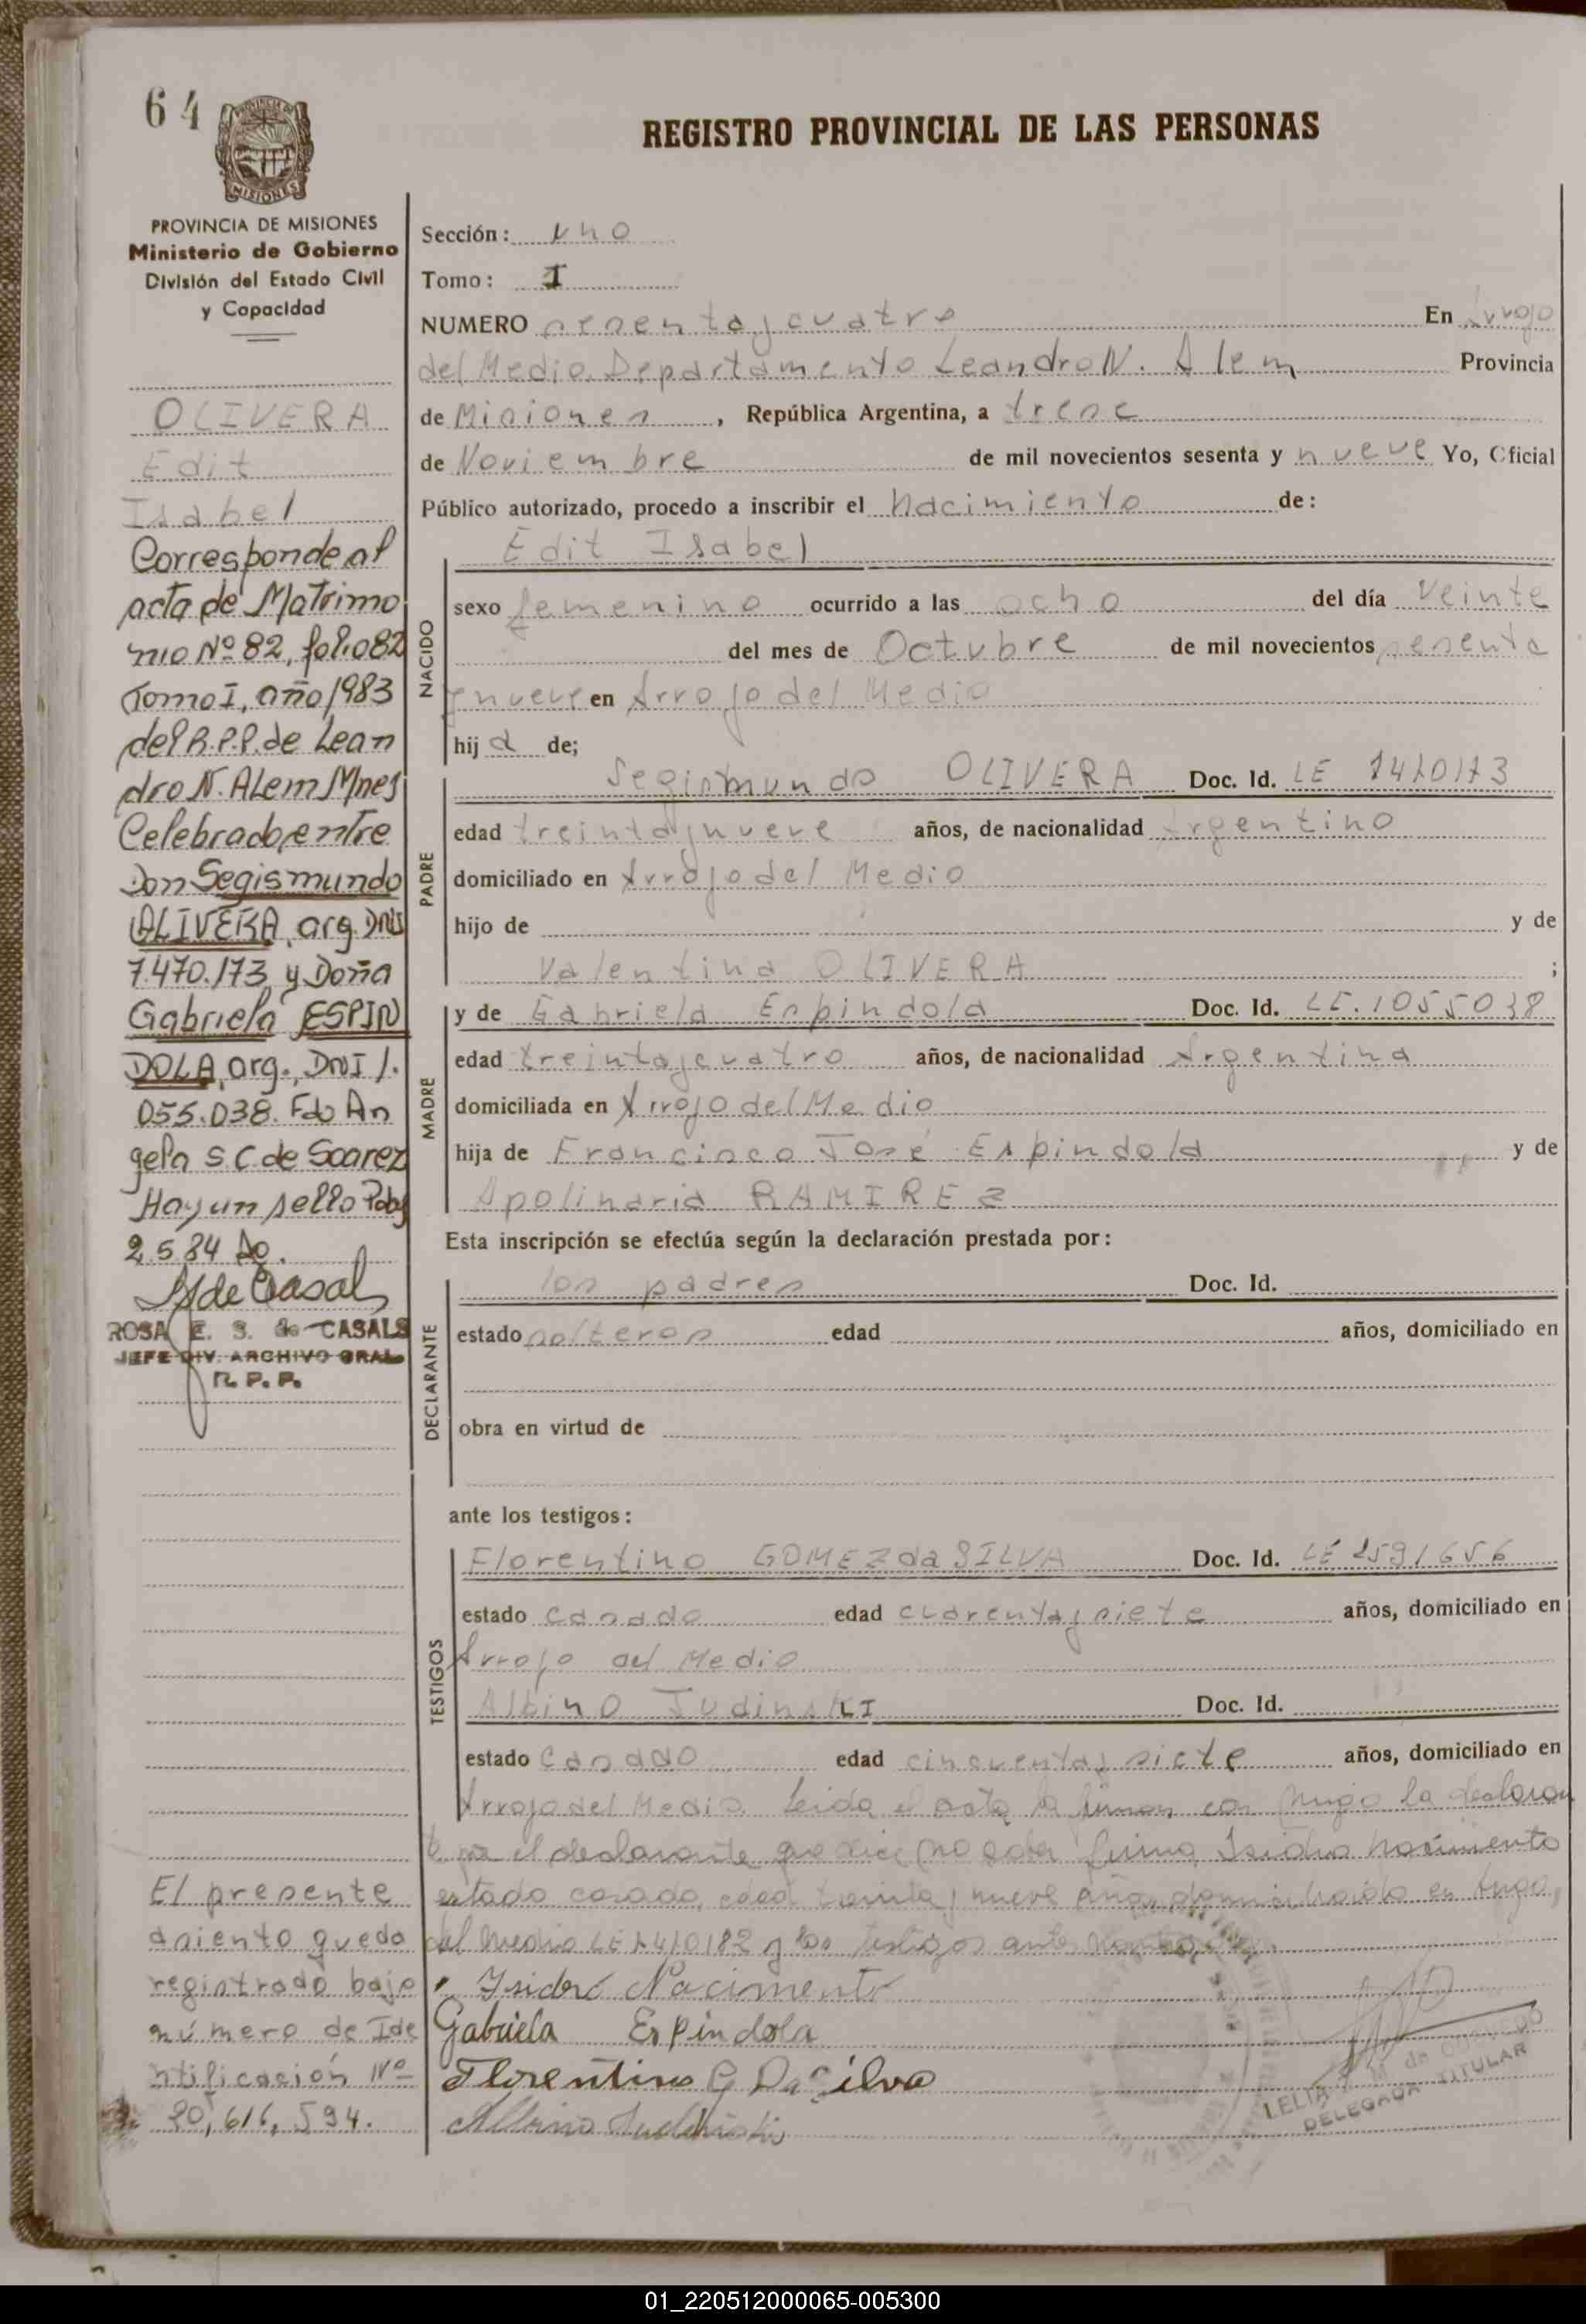 64
PROVINCIA DE MISIONES
Ministerio de Gobierno
División del Estado Civil
y Capacidad
OLIVERA
Edit
Isabel
Corresponde al
acta de Matrimo
nio Nº 82, fol. 082
Tomo I, año 1983
del R.P.P. de Lean
dro N. Alem Mnes
Celebrado, entre
Don Segismundo
OLIVERA, arg. DNI
7.470.173, y Doña
Gabriela ESPIN
DOLA, arg., DNI 1.
055.038. Fdo An
gela S C de Soarez
Hay un sello Pdas
2.5.84
ROSA E. S. de CASALS
JEFE DIV. ARCHIVO GRAL
R. P. P.
El presente
asiento quedo
registrado bajo
número de Ide
ntificación Nº
20,616,594.
REGISTRO PROVINCIAL DE LAS PERSONAS
Sección: Uno
Tomo: I
NUMERO sesenta y cuatro En Arroyo
del Medio Departamento Leandro N. Alem Provincia
de Misiones, República Argentina, a trese
de Noviembre de mil novecientos sesenta y nueve Yo, Oficial
Público autorizado, procedo a inscribir el nacimiento de:
Edit Isabel
NACIDO
sexo femenino ocurrido a las ocho del día veinte
del mes de Octubre de mil novecientos sesenta
y nueve en Arroyo del Medio
hij a de;
PADRE
Segismundo OLIVERA Doc. Id. LE 7470173
edad treinta y nueve años, de nacionalidad Argentino
domiciliado en Arroyo del Medio
hijo de y de
Valentina OLIVERA ;
MADRE
y de Gabriela Espindola Doc. Id. LE. 1055038
edad treinta y cuatro años, de nacionalidad Argentina
domiciliada en Arroyo del Medio
hija de Francisco José Espindola y de
Apolinaria RAMIREZ
Esta inscripción se efectúa según la declaración prestada por:
DECLARANTE
los padres Doc. Id.
estado solteros edad años, domiciliado en
obra en virtud de
ante los testigos:
TESTIGOS
Florentino GOMEZ da SILVA Doc. Id. LE 2591656
estado casado edad cuarenta y siete años, domiciliado en
Arroyo del Medio
Albino Judinski Doc. Id.
estado casado edad cincuenta y siete años, domiciliado en
Arroyo del Medio Leida el acta la firman con migo la declaran
te por el declarante que dice no saber firma Isidro Nacimento
estado casado, edad treinta y nueve años domiciliado en Arroyo
del Medio LE 7470182 y los testigos antes
Isidro Nacimento
Gabriela Espindola
Florentino G Da Silva
Albino
LELIA
DELEGADA TITULAR
01_220512000065-005300